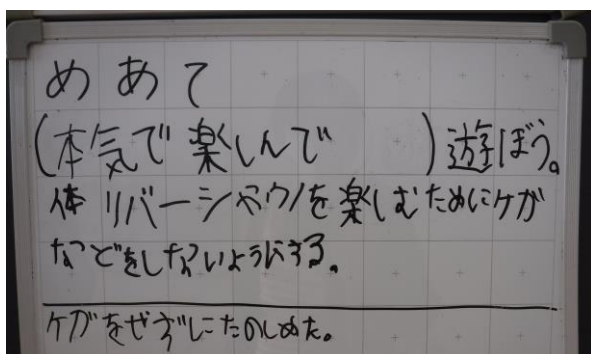 めあて
(本気で楽しんで　　　)遊ぼう。
体 リバーシやウノを楽しむためにケガ
などをしないようにする。
ケガをせずにたのしめた。